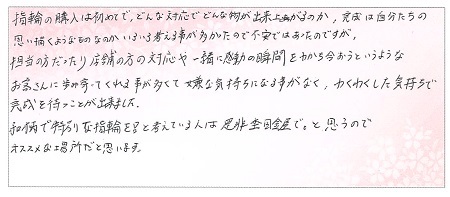 指輪の購入は初めてで、どんな対応でどんな物が出来上がるのか、完成は自分たちの
思い描くようなものなのかいろいろ考える事が多かったので不安ではあったのですが、
担当の方だったり店舗の方の対応や一緒に感動の瞬間をわかち合おうというような
お客さんに歩み寄ってくれる事が多くて嫌な気持ちになる事がなく、わくわくした気持ちで
完成を待つことが出来ました。
和柄で特別な指輪をと考えている人は是非杢目金屋で。と思うので
オススメな場所だと思います。